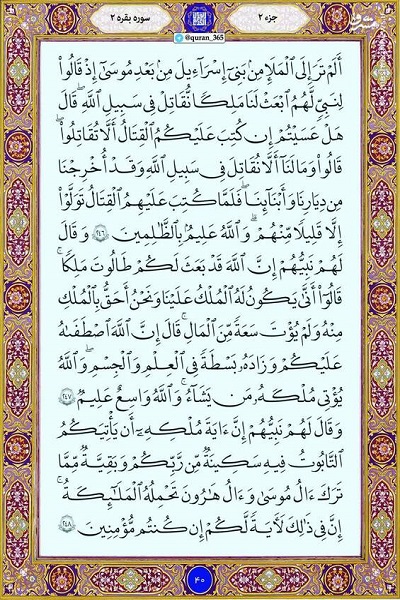 سوره بقره ۲
جزء ۲
@quran_365
أَلَمْ تَرَ إِلَى ٱلْمَلَإِ مِنۢ بَنِىٓ إِسْرَٰٓءِيلَ مِنۢ بَعْدِ مُوسَىٰٓ إِذْ قَالُوا۟
لِنَبِىٍّ لَّهُمُ ٱبْعَثْ لَنَا مَلِكًا نُّقَٰتِلْ فِى سَبِيلِ ٱللَّهِ ۖ قَالَ
هَلْ عَسَيْتُمْ إِن كُتِبَ عَلَيْكُمُ ٱلْقِتَالُ أَلَّا تُقَٰتِلُوا۟ ۖ
قَالُوا۟ وَمَا لَنَآ أَلَّا نُقَٰتِلَ فِى سَبِيلِ ٱللَّهِ وَقَدْ أُخْرِجْنَا
مِن دِيَٰرِنَا وَأَبْنَآئِنَا ۖ فَلَمَّا كُتِبَ عَلَيْهِمُ ٱلْقِتَالُ تَوَلَّوْا۟
إِلَّا قَلِيلًا مِّنْهُمْ ۗ وَٱللَّهُ عَلِيمٌۢ بِٱلظَّٰلِمِينَ ٢٤٦ وَقَالَ
لَهُمْ نَبِيُّهُمْ إِنَّ ٱللَّهَ قَدْ بَعَثَ لَكُمْ طَالُوتَ مَلِكًا ۚ
قَالُوٓا۟ أَنَّىٰ يَكُونُ لَهُ ٱلْمُلْكُ عَلَيْنَا وَنَحْنُ أَحَقُّ بِٱلْمُلْكِ
مِنْهُ وَلَمْ يُؤْتَ سَعَةً مِّنَ ٱلْمَالِ ۚ قَالَ إِنَّ ٱللَّهَ ٱصْطَفَىٰهُ
عَلَيْكُمْ وَزَادَهُۥ بَسْطَةً فِى ٱلْعِلْمِ وَٱلْجِسْمِ ۖ وَٱللَّهُ
يُؤْتِى مُلْكَهُۥ مَن يَشَآءُ ۚ وَٱللَّهُ وَٰسِعٌ عَلِيمٌ ٢٤٧
وَقَالَ لَهُمْ نَبِيُّهُمْ إِنَّ ءَايَةَ مُلْكِهِۦٓ أَن يَأْتِيَكُمُ
ٱلتَّابُوتُ فِيهِ سَكِينَةٌ مِّن رَّبِّكُمْ وَبَقِيَّةٌ مِّمَّا
تَرَكَ ءَالُ مُوسَىٰ وَءَالُ هَٰرُونَ تَحْمِلُهُ ٱلْمَلَٰٓئِكَةُ ۚ
إِنَّ فِى ذَٰلِكَ لَءَايَةً لَّكُمْ إِن كُنتُم مُّؤْمِنِينَ ٢٤٨
۴۰